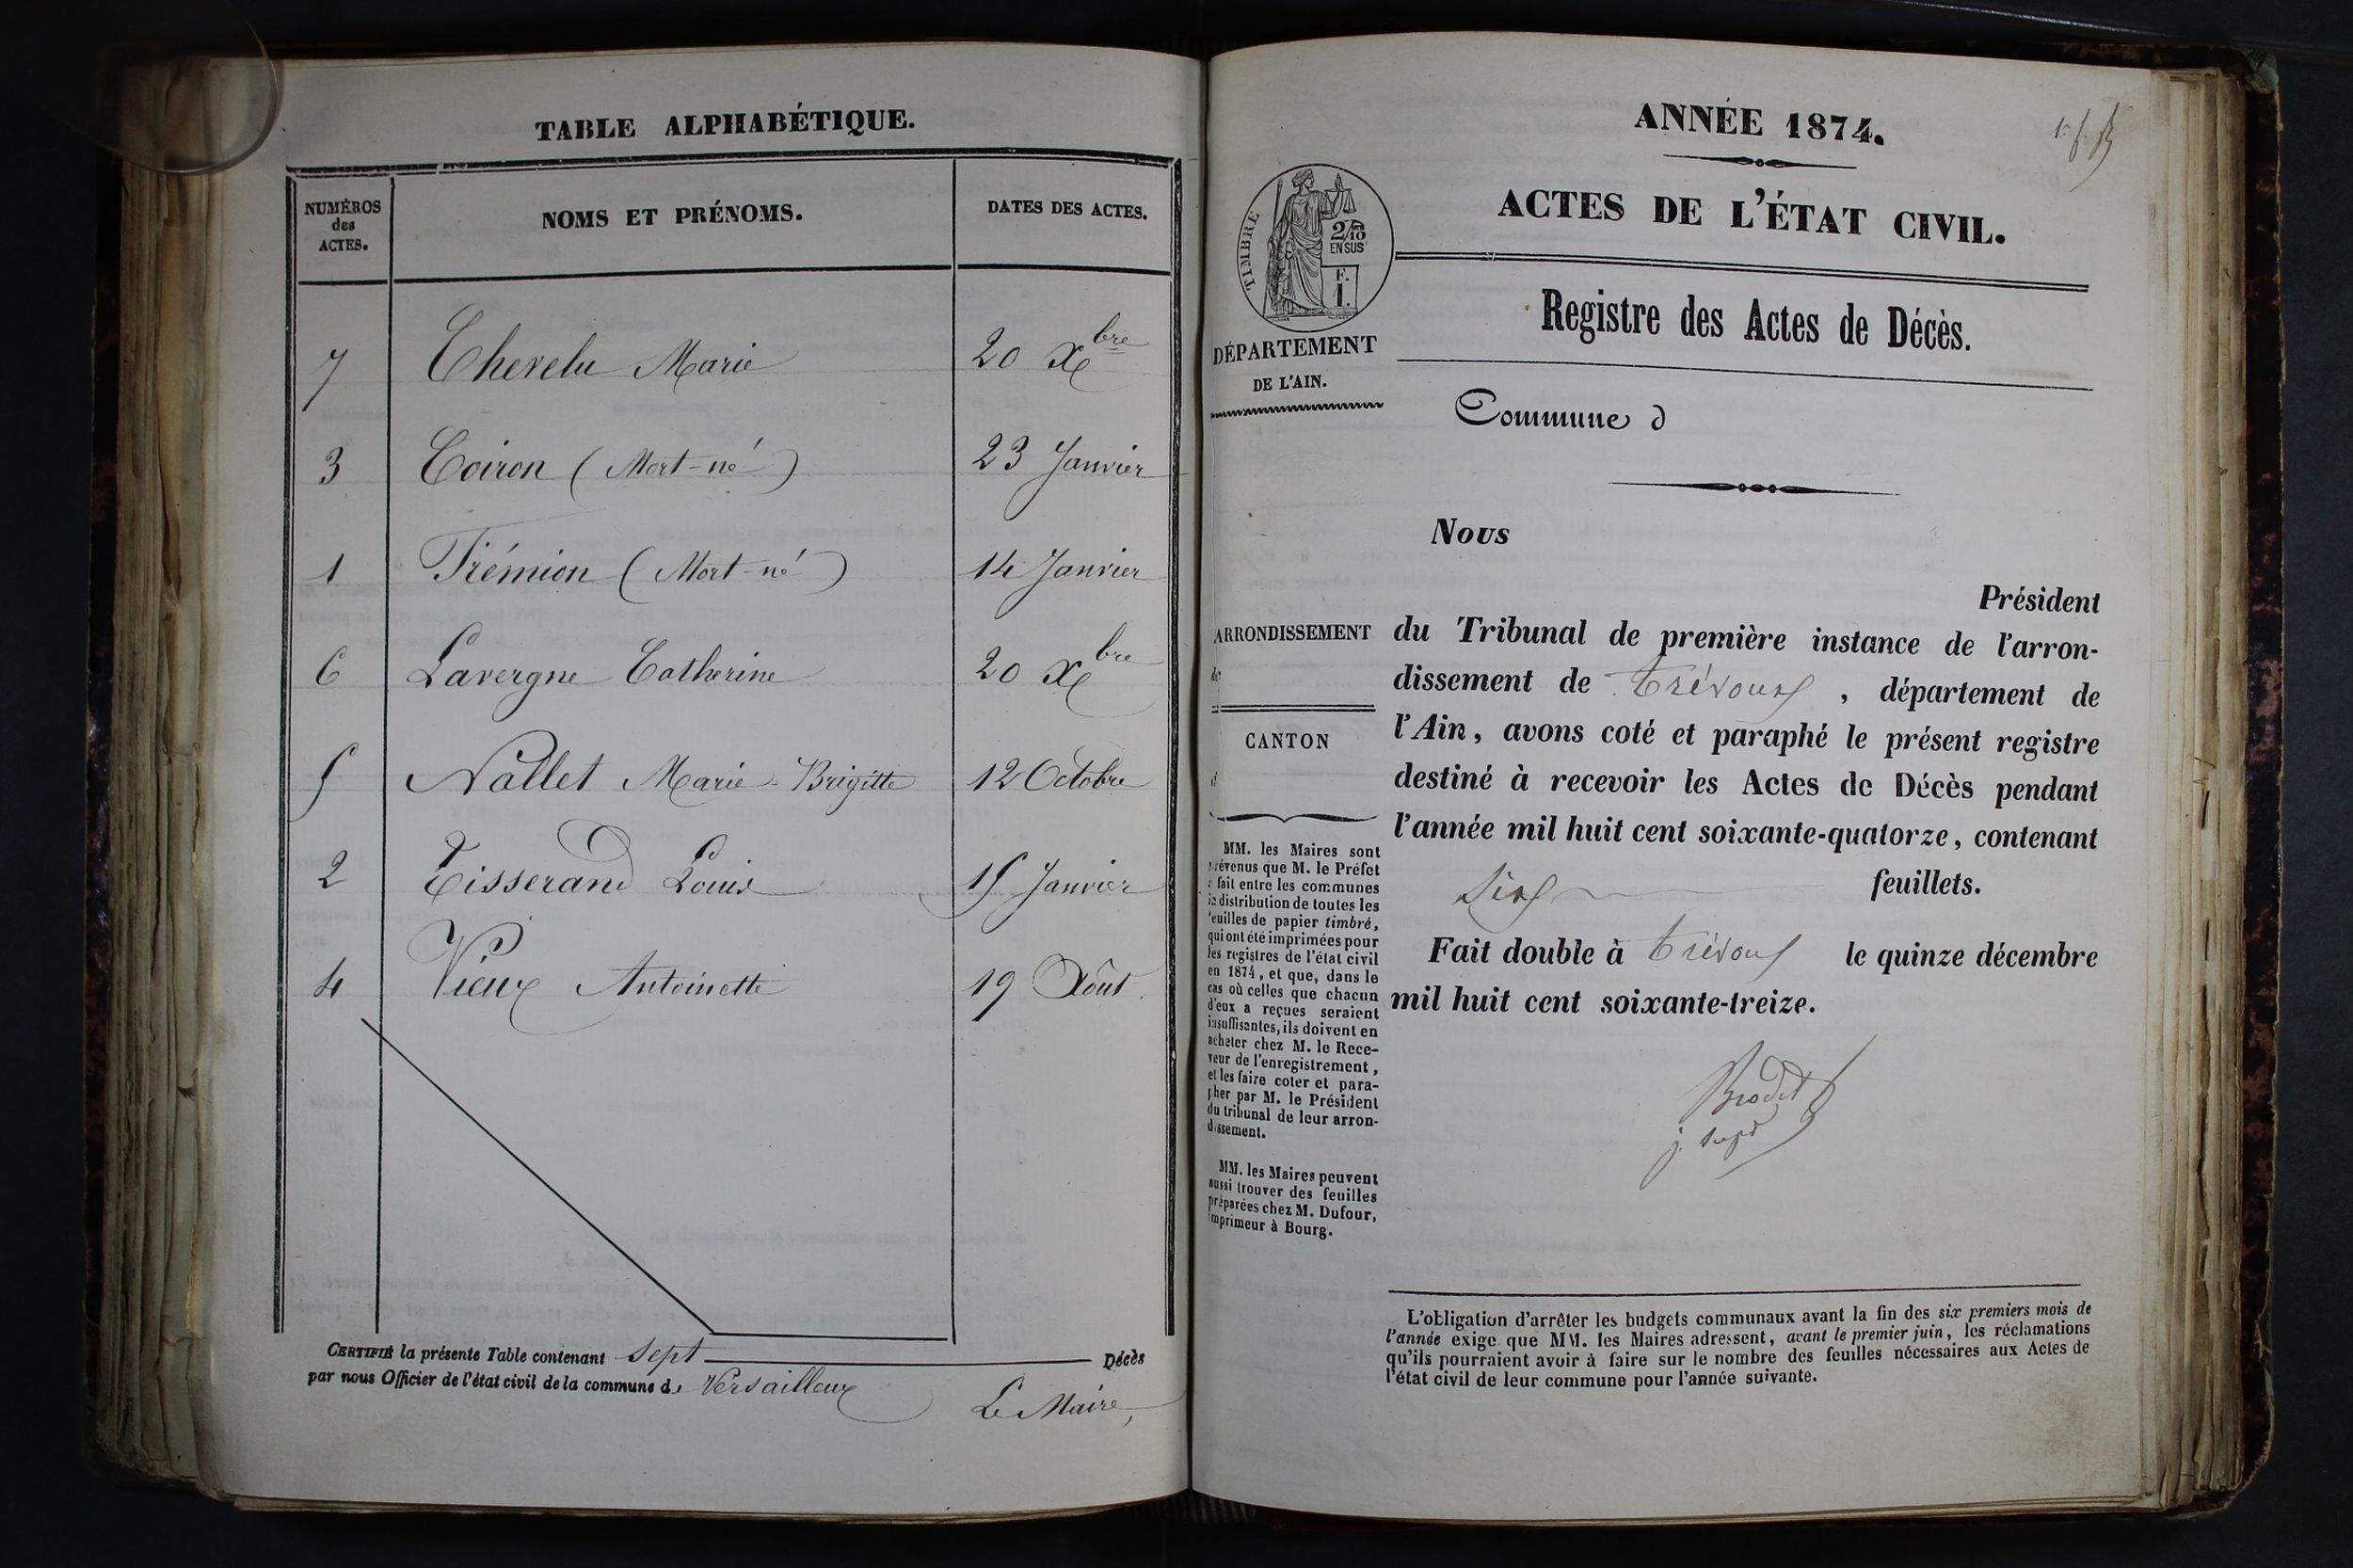 TABLE ALPHABÉTIQUE.
NUMÉROS
des
ACTES.
NOMS ET PRÉNOMS.
DATES DES ACTES.
7 Chevelu Marie 20 Xbre
3 Coiron (Mort-né) 23 Janvier
1 Frémion (Mort-né) 14 Janvier
6 Lavergne Catherine 20 Xbre
5 Nallet Marie-Brigitte 12 Octobre
2 Tisserand Louis 15 Janvier
4 Vieux Antoinette 19 Août.
CERTIFIÉ la présente Table contenant Sept Décès
par nous Officier de l'état civil de la commune de Versailleux
Le Maire,
ANNÉE 1874.
ACTES DE L'ÉTAT CIVIL.
TIMBRE
2/10
EN SUS
F.
1.
DÉPARTEMENT
DE L'AIN.
Registre des Actes de Décès.
Commune d
Nous
Président
du Tribunal de première instance de l'arron-
dissement de Trévoux, département de
l'Ain, avons coté et paraphé le présent registre
destiné à recevoir les Actes de Décès pendant
l'année mil huit cent soixante-quatorze, contenant
Six feuillets.
Fait double à Trévoux le quinze décembre
mil huit cent soixante-treize.
Brodet
ARRONDISSEMENT
de
CANTON
d
MM. les Maires sont
prévenus que M. le Préfet
a fait entre les communes
la distribution de toutes les
feuilles de papier timbré,
qui ont été imprimées pour
les registres de l'état civil
en 1874, et que, dans le
cas où celles que chacun
d'eux a reçues seraient
insuffisantes, ils doivent en
acheter chez M. le Rece-
veur de l'enregistrement,
et les faire coter et para-
pher par M. le Président
du tribunal de leur arron-
dissement.
MM. les Maires peuvent
aussi trouver des feuilles
préparées chez M. Dufour,
imprimeur à Bourg.
L'obligation d'arrêter les budgets communaux avant la fin des six premiers mois de
l'année exige que MM. les Maires adressent, avant le premier juin, les réclamations
qu'ils pourraient avoir à faire sur le nombre des feuilles nécessaires aux Actes de
l'état civil de leur commune pour l'année suivante.